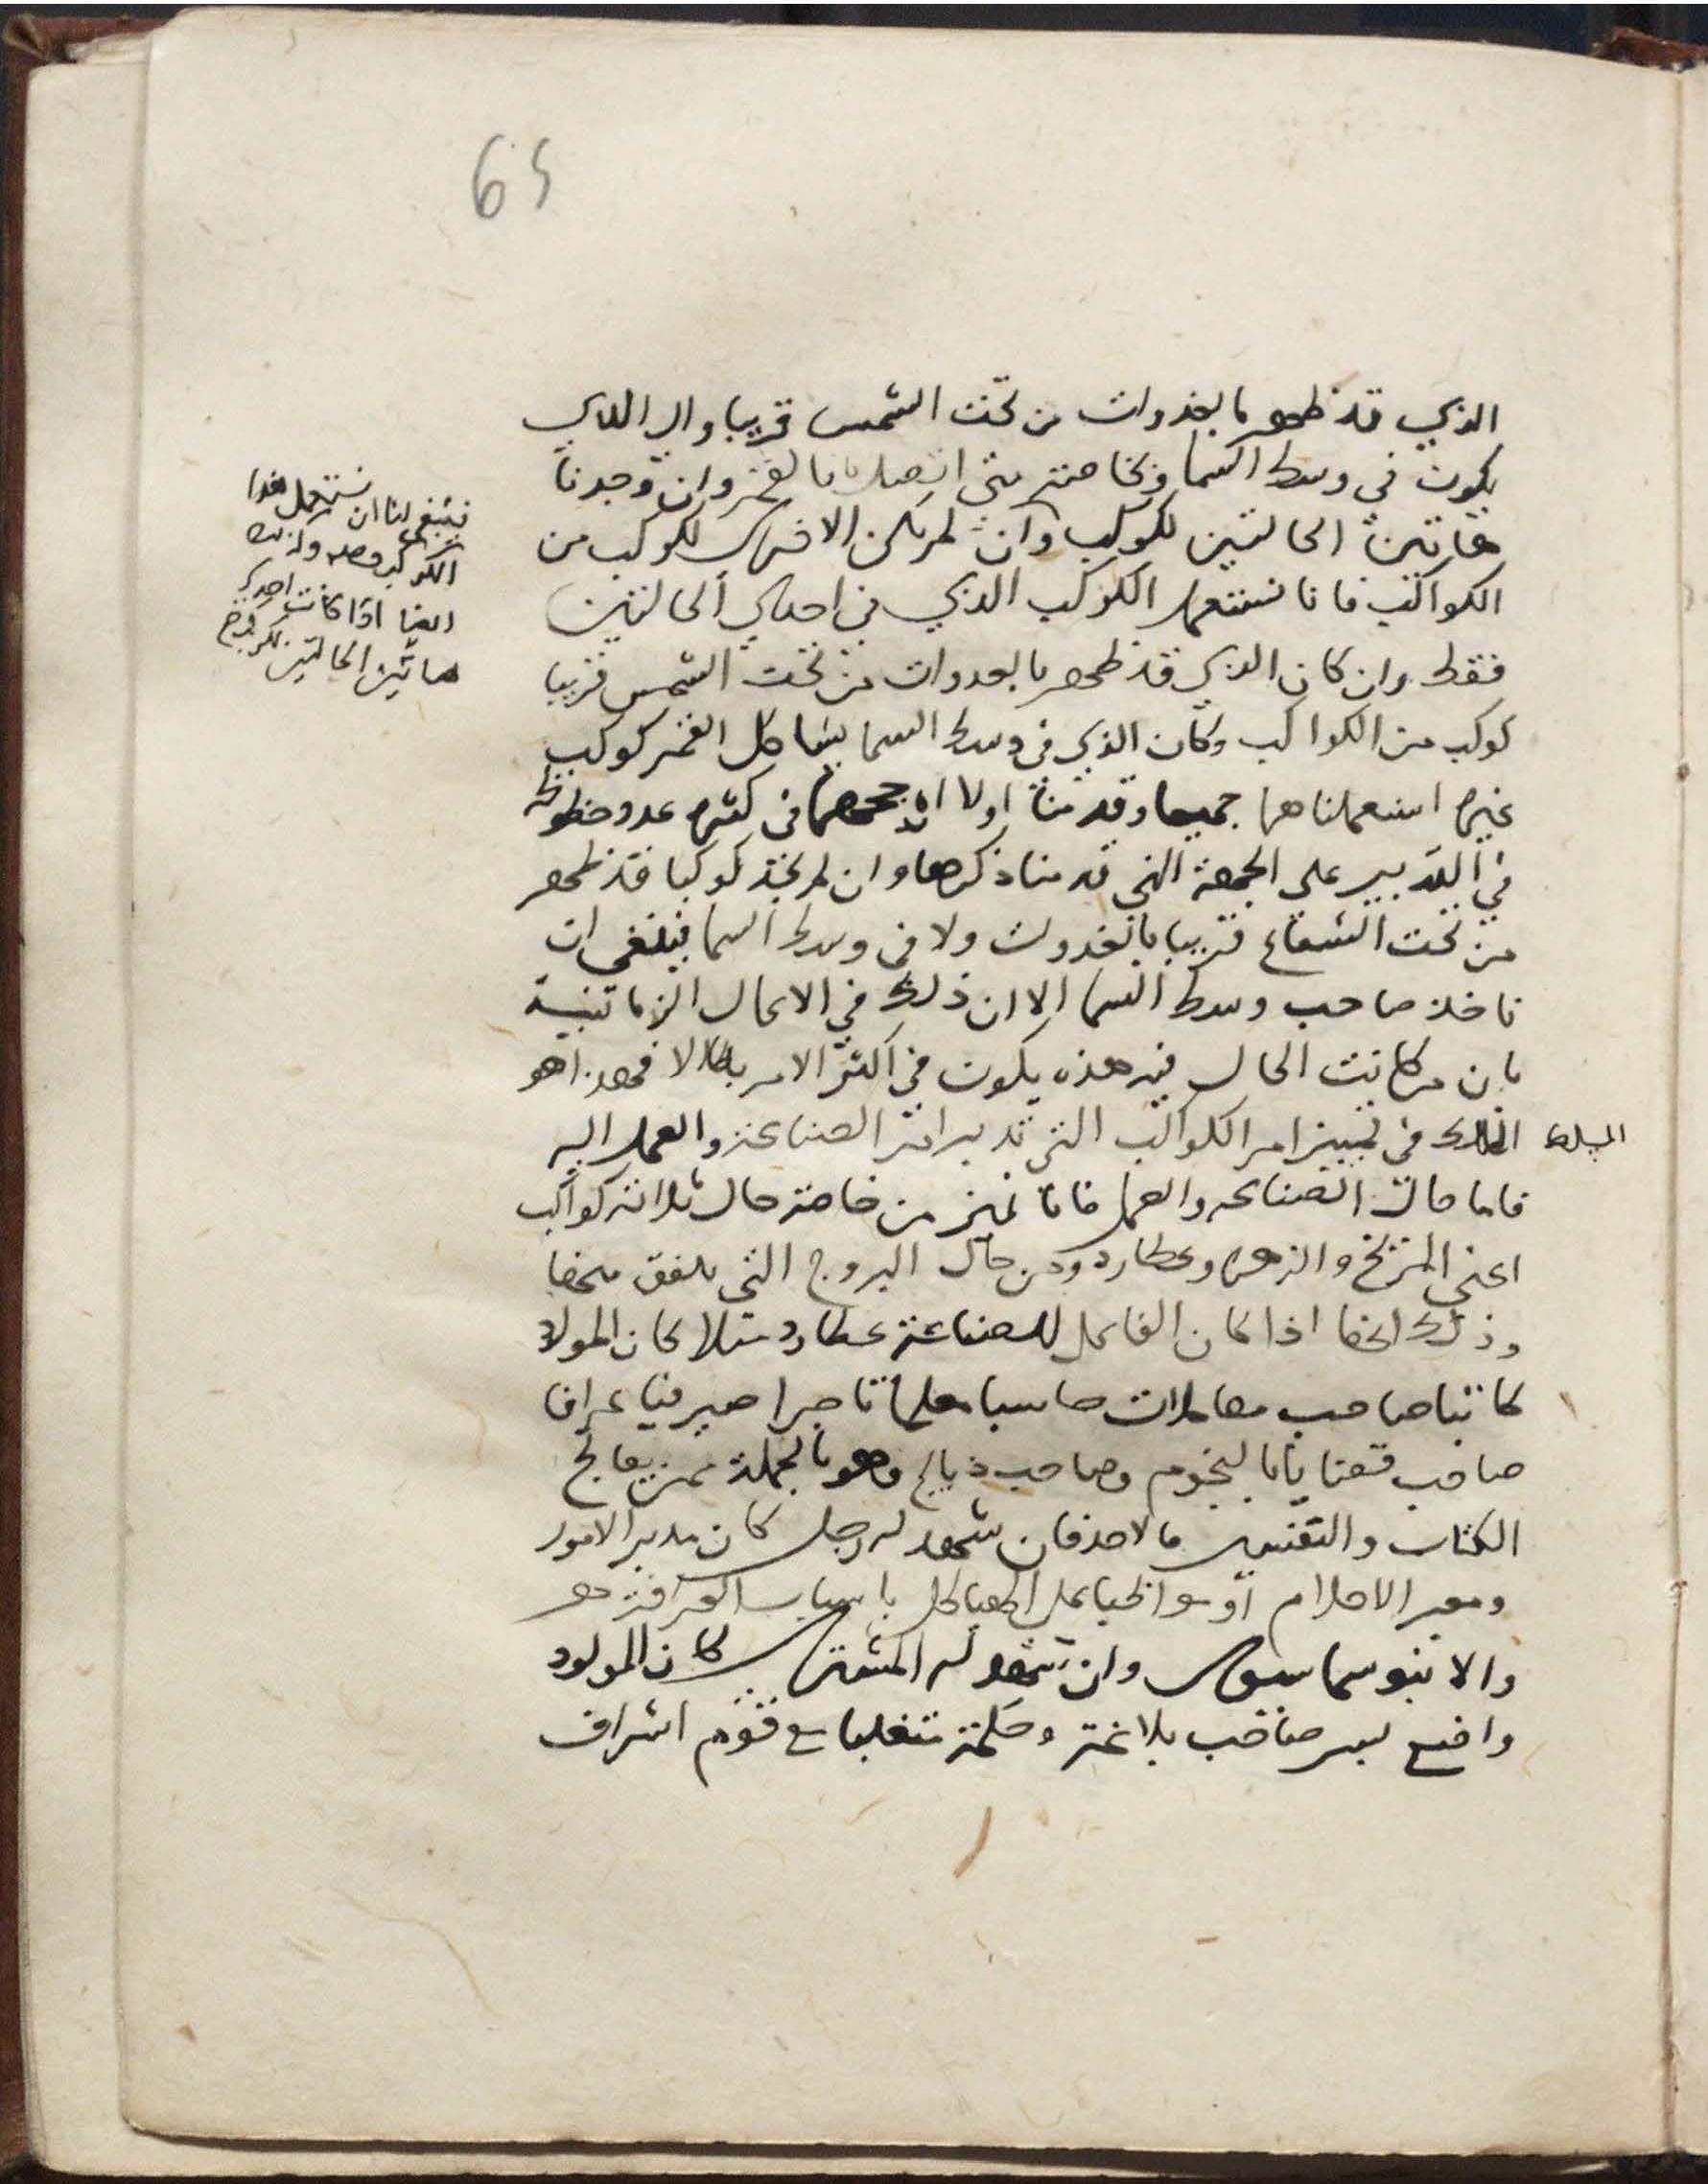 65
الذي قد ظهر بالغدوات من تحت الشمس قريبا والى الذي
يكون في وسط السما وبخاصة متى اتصل بالقمر وان وجدنا
هاتين الحالتين لكوكب وان لم تكن الاخرى لكوكب من
الكواكب فانا نستعمل الكوكب الذي في احدى الحالتين
فقط وان كان الذي قد ظهر بالعدوات من تحت الشمس قريبا
كوكب من الكواكب وكان الذي في وسط السما يشاكل القمر كوكب
غيره استعملناهما جميعا وقدمنا اولا ارجحهما في كثرة عدد حظوظه
في التدبير على الجهة التي قدمنا ذكرها وان لم نجد كوكبا قد ظهر
من تحت الشعاع قريبا بالغدوات ولا في وسط السما فينبغي ان
ناخذ صاحب وسط السما الا ان ذلك في الاعمال الزمانية
بان من كانت الحال فيه هذه يكون في اكثر الامر بطالا فهذا هو
المسلك في تمييز امر الكواكب التي تدبر امر الصناعة والعمل
فاما حال الصناعه والعمل فانا نميز من خاصة حال ثلاثه كواكب
اعني المريخ والزهره وعطارد ومن حال البروج التي يتفق
وذلك اذا كان الفاعل للصناعة عطارد مثلا كان المولود
كاتبا صاحب معاملات حاسبا معلما تاجرا صيرفيا عرافا
صاحب قضايا بالنجوم وصاحب ذبايح وهو بالجملة ممن يعالج
الكتاب والتفسير فان شهد له زحل كان مدبر الامور
ومعبر الاحلام او الهياكل باسباب العرافة
وان شهد له المشتري كان المولود
واضع صاحب بلاغة وحكمة متقلبا مع قوم اشراف
فينبغي لنا ان نستعمل هذا
الكوكب وحده وكذلك
ايضا اذا كانت احدى
هاتين الحالتين لكوكب
المسلك